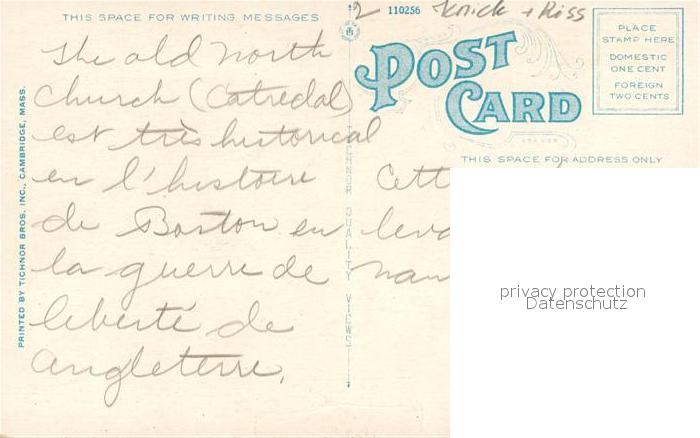 THIS SPACE FOR WRITING MESSAGES
2 110256 Knick + Kiss
POST
CARD
PLACE
STAMP HERE
DOMESTIC
ONE CENT
FOREIGN
TWO CENTS
THIS SPACE FOR ADDRESS ONLY
PRINTED BY TICHNOR BROS. INC., CAMBRIDGE, MASS.
TICHNOR QUALITY VIEWS
The old north
church (Catredal)
est très historical
en l'histoire
de Boston en
la guerre de
leberté de
Angleterre.
Cett
leva
nan
privacy protection
Datenschutz